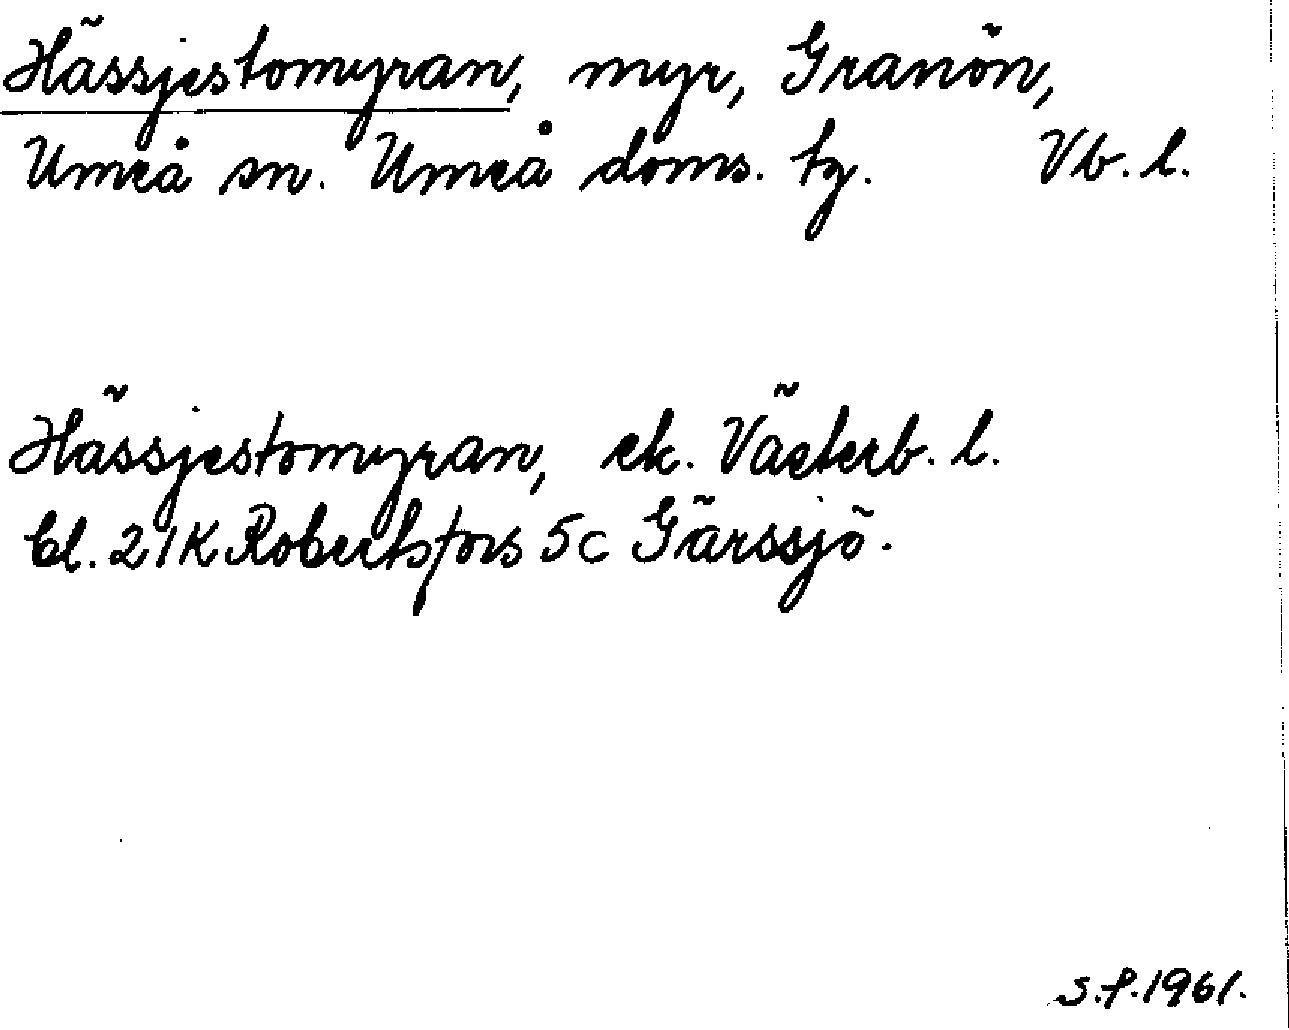 Hässjestomyran, myr, Granön,
Umeå sn. Umeå doms. tg. Vb. l.
Hässjestomyran, ek. Västerb. l.
bl. 21K Robertsfors 5c Gärssjö.
S.F. 1961.